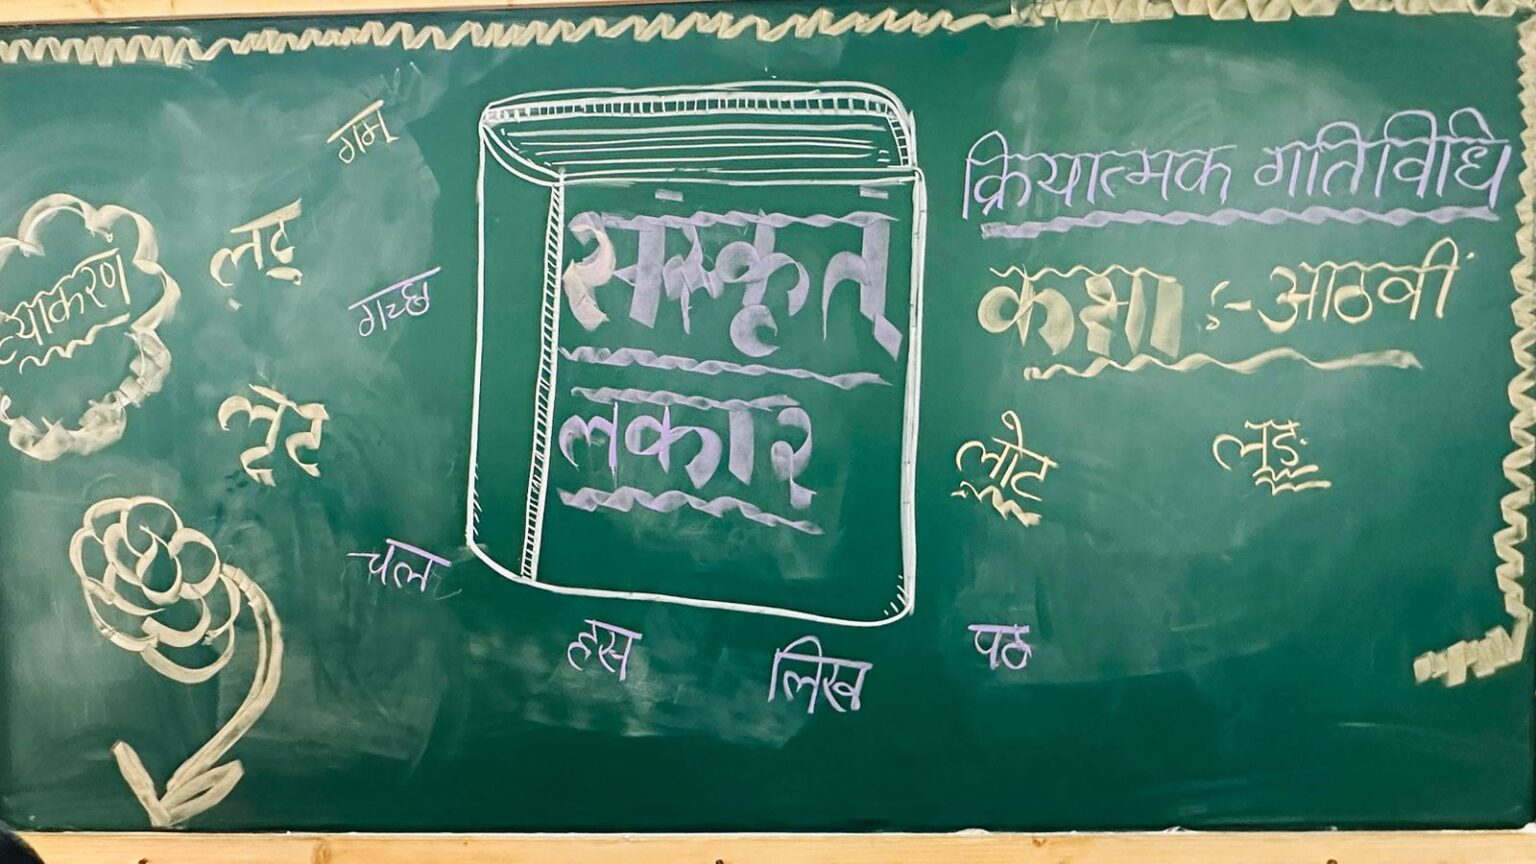 गम
क्रियात्मक गतिविधि
व्याकरण
लट्
संस्कृत्
कक्षा :- आठवीं
गच्छ
लृट
लकार
लोट
लङ
चल
हस
लिख
पठ